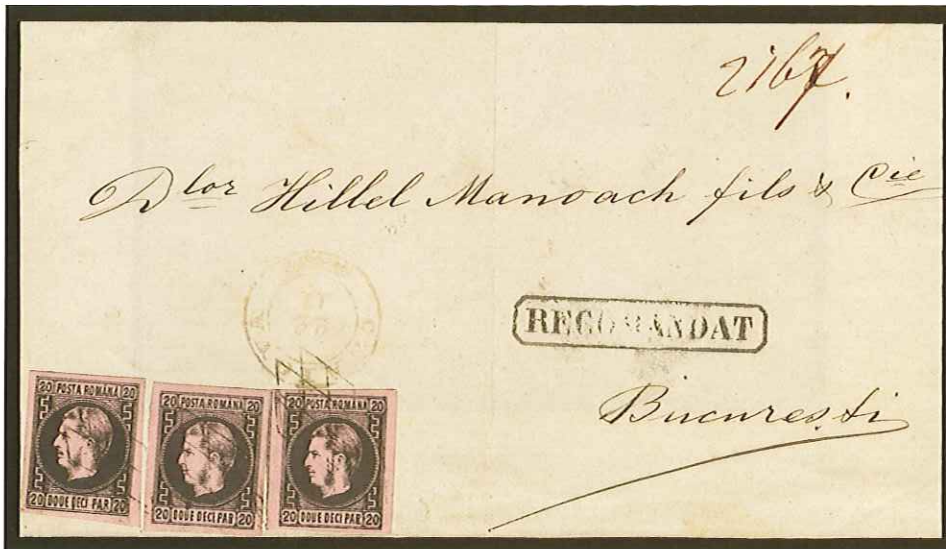 2167.
Dlor Hillel Manoach fils & Cie
RECOMANDAT
Bucuresti
20 POSTA ROMANA 20
20 DOUE DECI PAR 20
20 POSTA ROMANA 20
20 DOUE DECI PAR 20
20 POSTA ROMANA 20
20 DOUE DECI PAR 20